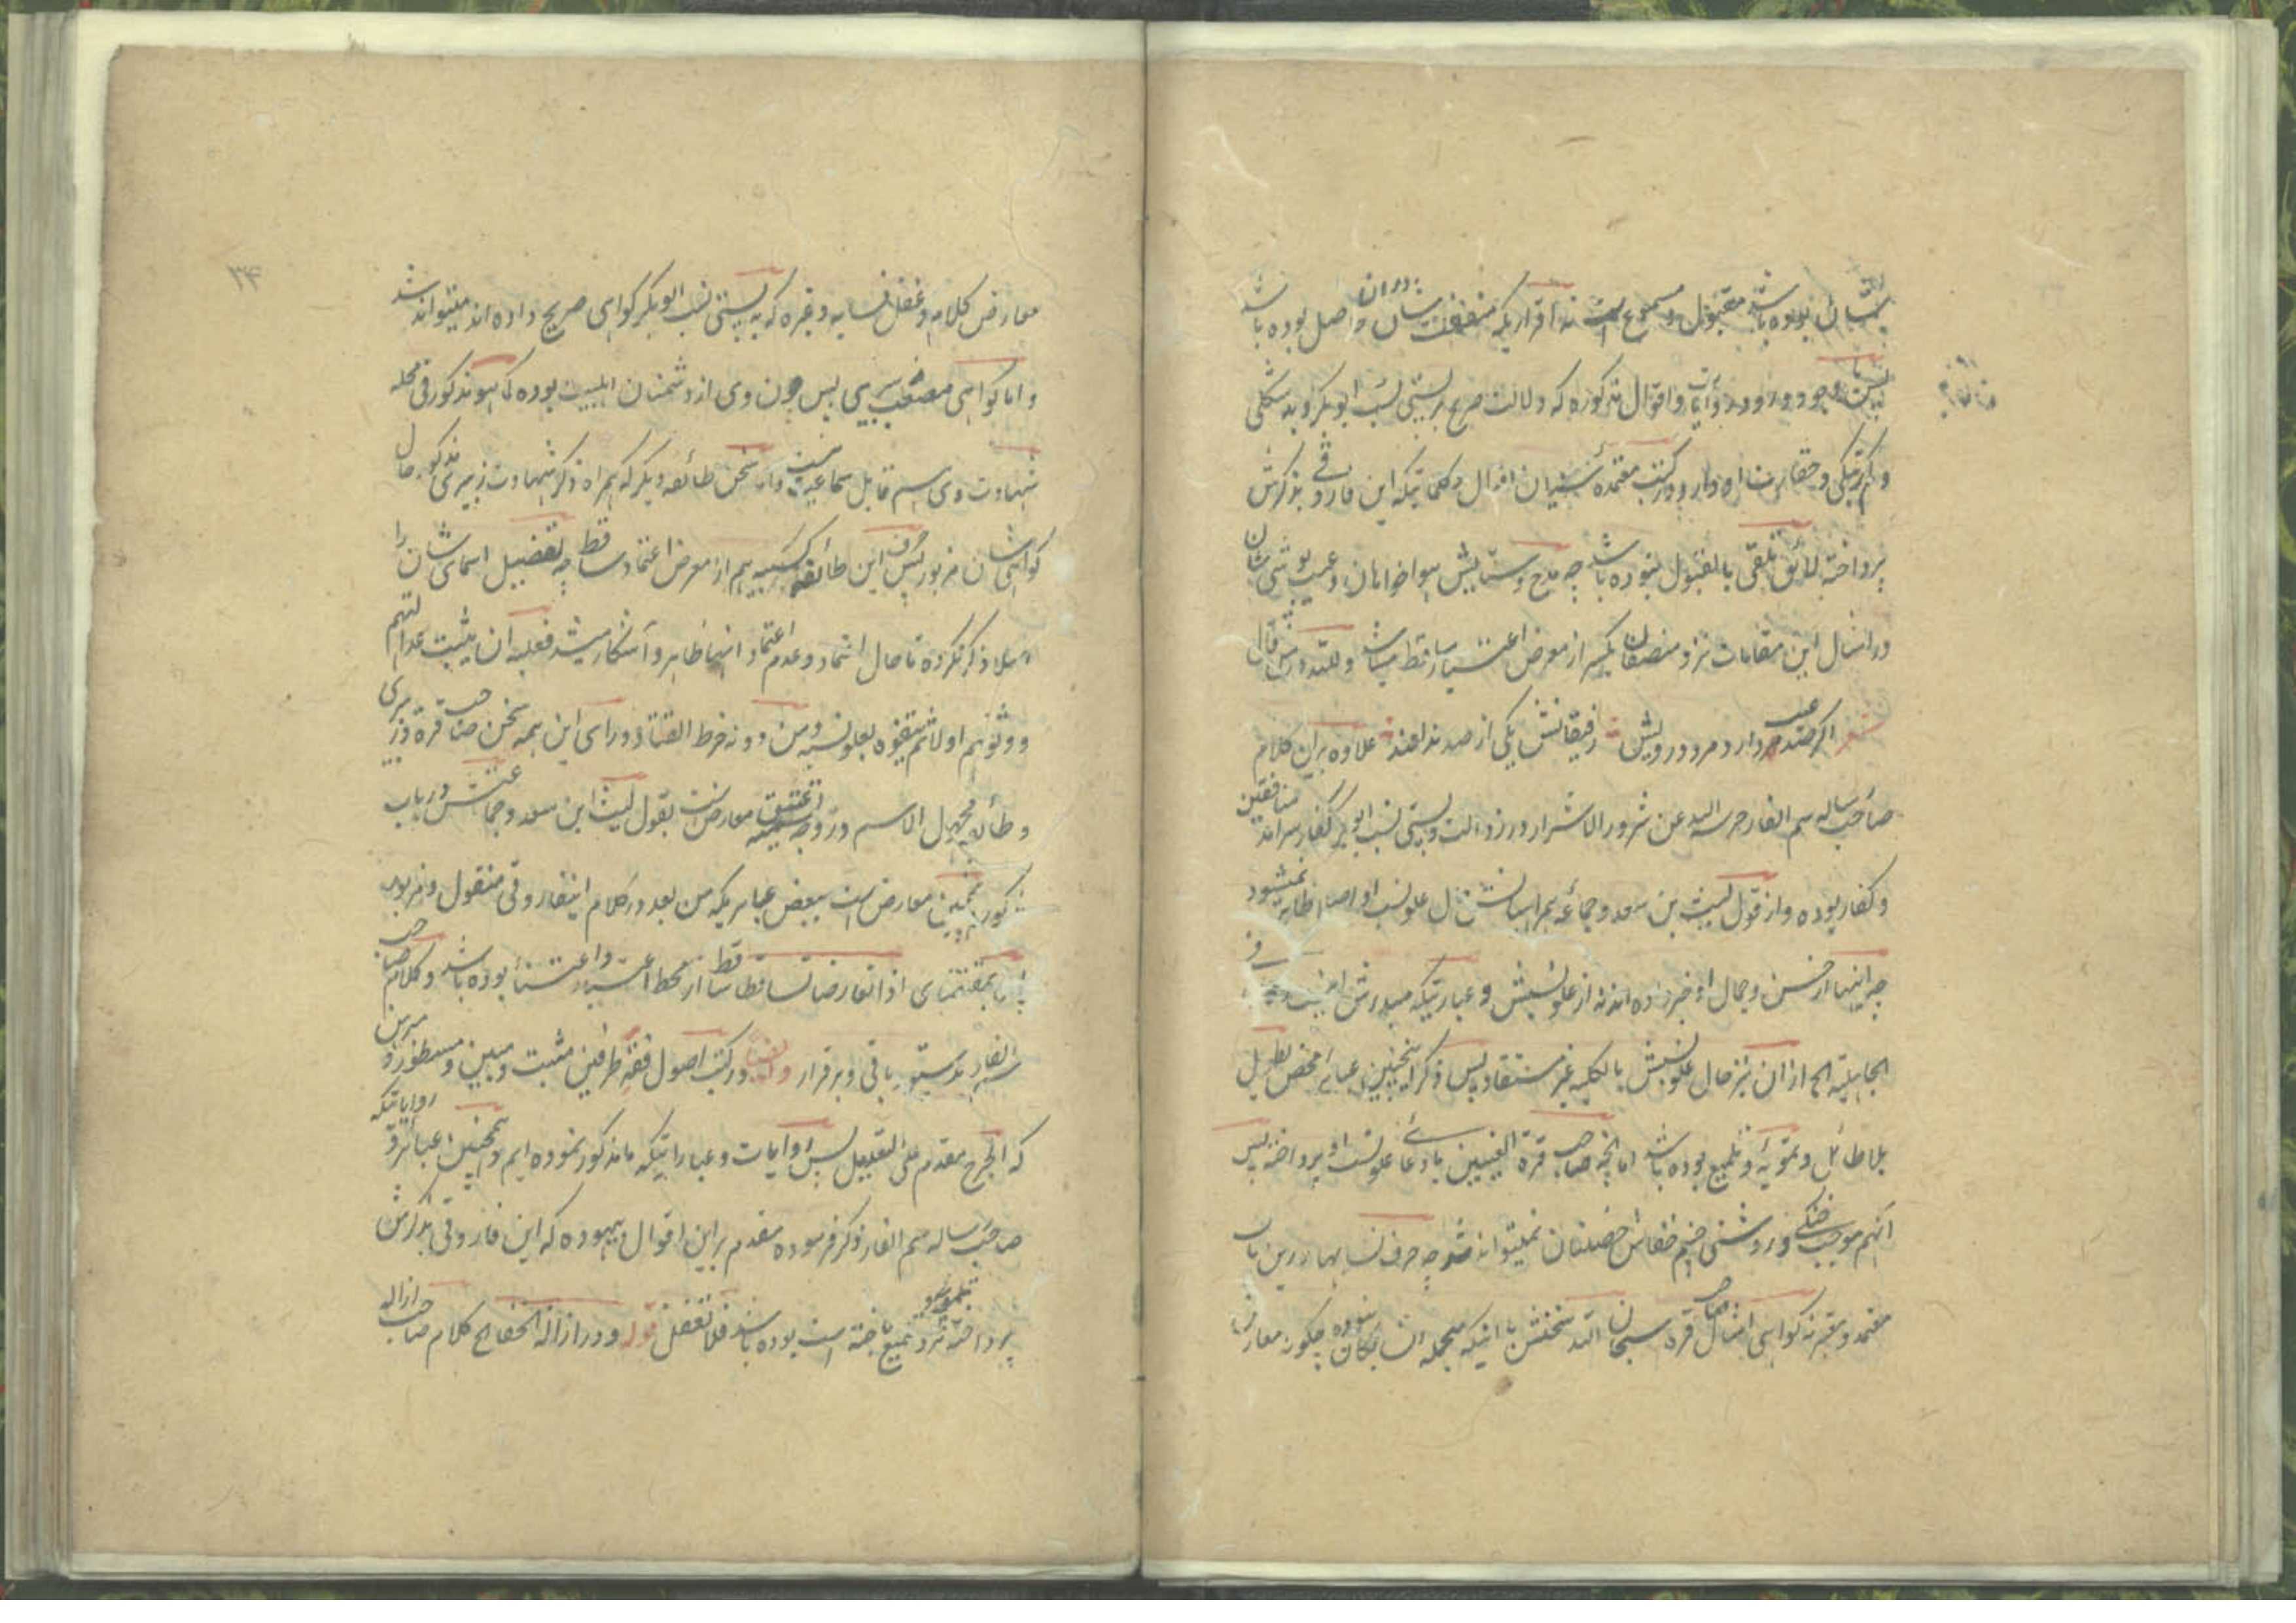 بوده باشد مقبول و مسموع است نه اقراریکه منفعت شان دران حاصل بوده باشد
وجود ورود آیات و اقوال مذکوره که دلالت صریح بر پستی نسب ابوبکر و بد شکلی
و حقارت او دارد در کتب معتمده سنیان اقوال و کلماتیکه این فاروقی بذکرش
پرداخته لائق تلقی بالقبول نبوده باشد چه مدح و ستایش هواخواهان و عیب پوشی شان
در امثال این مقامات نزد منصفان یکسر از معرض اعتبار ساقط میباشد و لله در من قال
شعر اگر صد عیب دارد مرد درویش رفیقانش یکی از صد ندانند علاوه بران کلام
صاحب رساله سم الفار حرسه الله عن شرور الاشرار در رذالت و پستی نسب ابوبکر کفار سرآمد منافقین
و کفار بوده و از قول لیث بن سعد و جماعه همراهیانش علو نسب او اصلا ظاهر نمیشود
چه اینها از حسن و جمال او خبر داده اند نه از علو نسبش و عبارتیکه
الجاهلیة الخ ازان نیز حال علو نسبش بالکلیه غیر مستفاد پس ذکر اینچنین عبارات محض تطویل
بلا طائل و تمویه و تلمیع بوده باشد اما آنچه صاحب قرة العینین بادعای علو نسب او پرداخته پس
آنهم موجب خنکی و روشنی چشم خفاش خصلتان نمیتواند شد چه حرف نسابها درین باب
معتمد و معتبر نه گواهی امثال صاحب قره سبحان الله سخنش با اینکه منجمله انسابیان نبوده چگونه معارض
۳۴
معارض کلام دغفل نسابه و غیره که به پستی نسب ابوبکر گواهی صریح داده اند میتواند شد
و اما گواهی مصعب زبیری پس چون وی از دشمنان اهلبیت بوده کما هو مذکور فی محله
شهادت وی هم قابل سماعت نیست و اما سخن طائفه دیگر که همراه ذکر شهادت زبیری مذکور حال
گواهی شان مزبور پس حرف این طائفه هم از معرض اعتماد ساقط چه تفضیل اسمای شان را
اصلا ذکر نکرده تا حال اعتماد و عدم اعتماد آنها ظاهر و آشکار میشد فعلیه ان یثبت عدالتهم
و وثوقهم اولا ثم یتفوه بعلو نسبه و من دونه خرط القتاد و ورای این همه سخن صاحب قره و زبیری
و طائفه مجهول الاسم در وجه تسمیه عتیق معارض است بقول لیث ابن سعد و جماعتش در باب
مذکور و همچنین معارض است ببعض عباراتیکه من بعد در کلام اینفاروقی منقول و مزبور
پس بمقتضای اذا تعارضا تساقطا ساقط از محط اعتبار و اعتنا بوده باشد و کلام صاحب
سم الفار بدستور باقی و برقرار و ایضا در کتب اصول فقه طرفین مثبت و مبین و مسطور و مبرهن
که الجرح مقدم علی التعدیل پس روایات و عباراتیکه ما مذکور نموده ایم و همچنین عبارات و روایاتیکه
صاحب رساله سم الفار ذکر فرموده مقدم بر این اقوال بیهوده که این فاروقی بذکرش
پرداخته نرد تلمیع باخته است بوده باشد فلا تغفل قوله و در ازالة الخفا الخ کلام صاحب ازاله